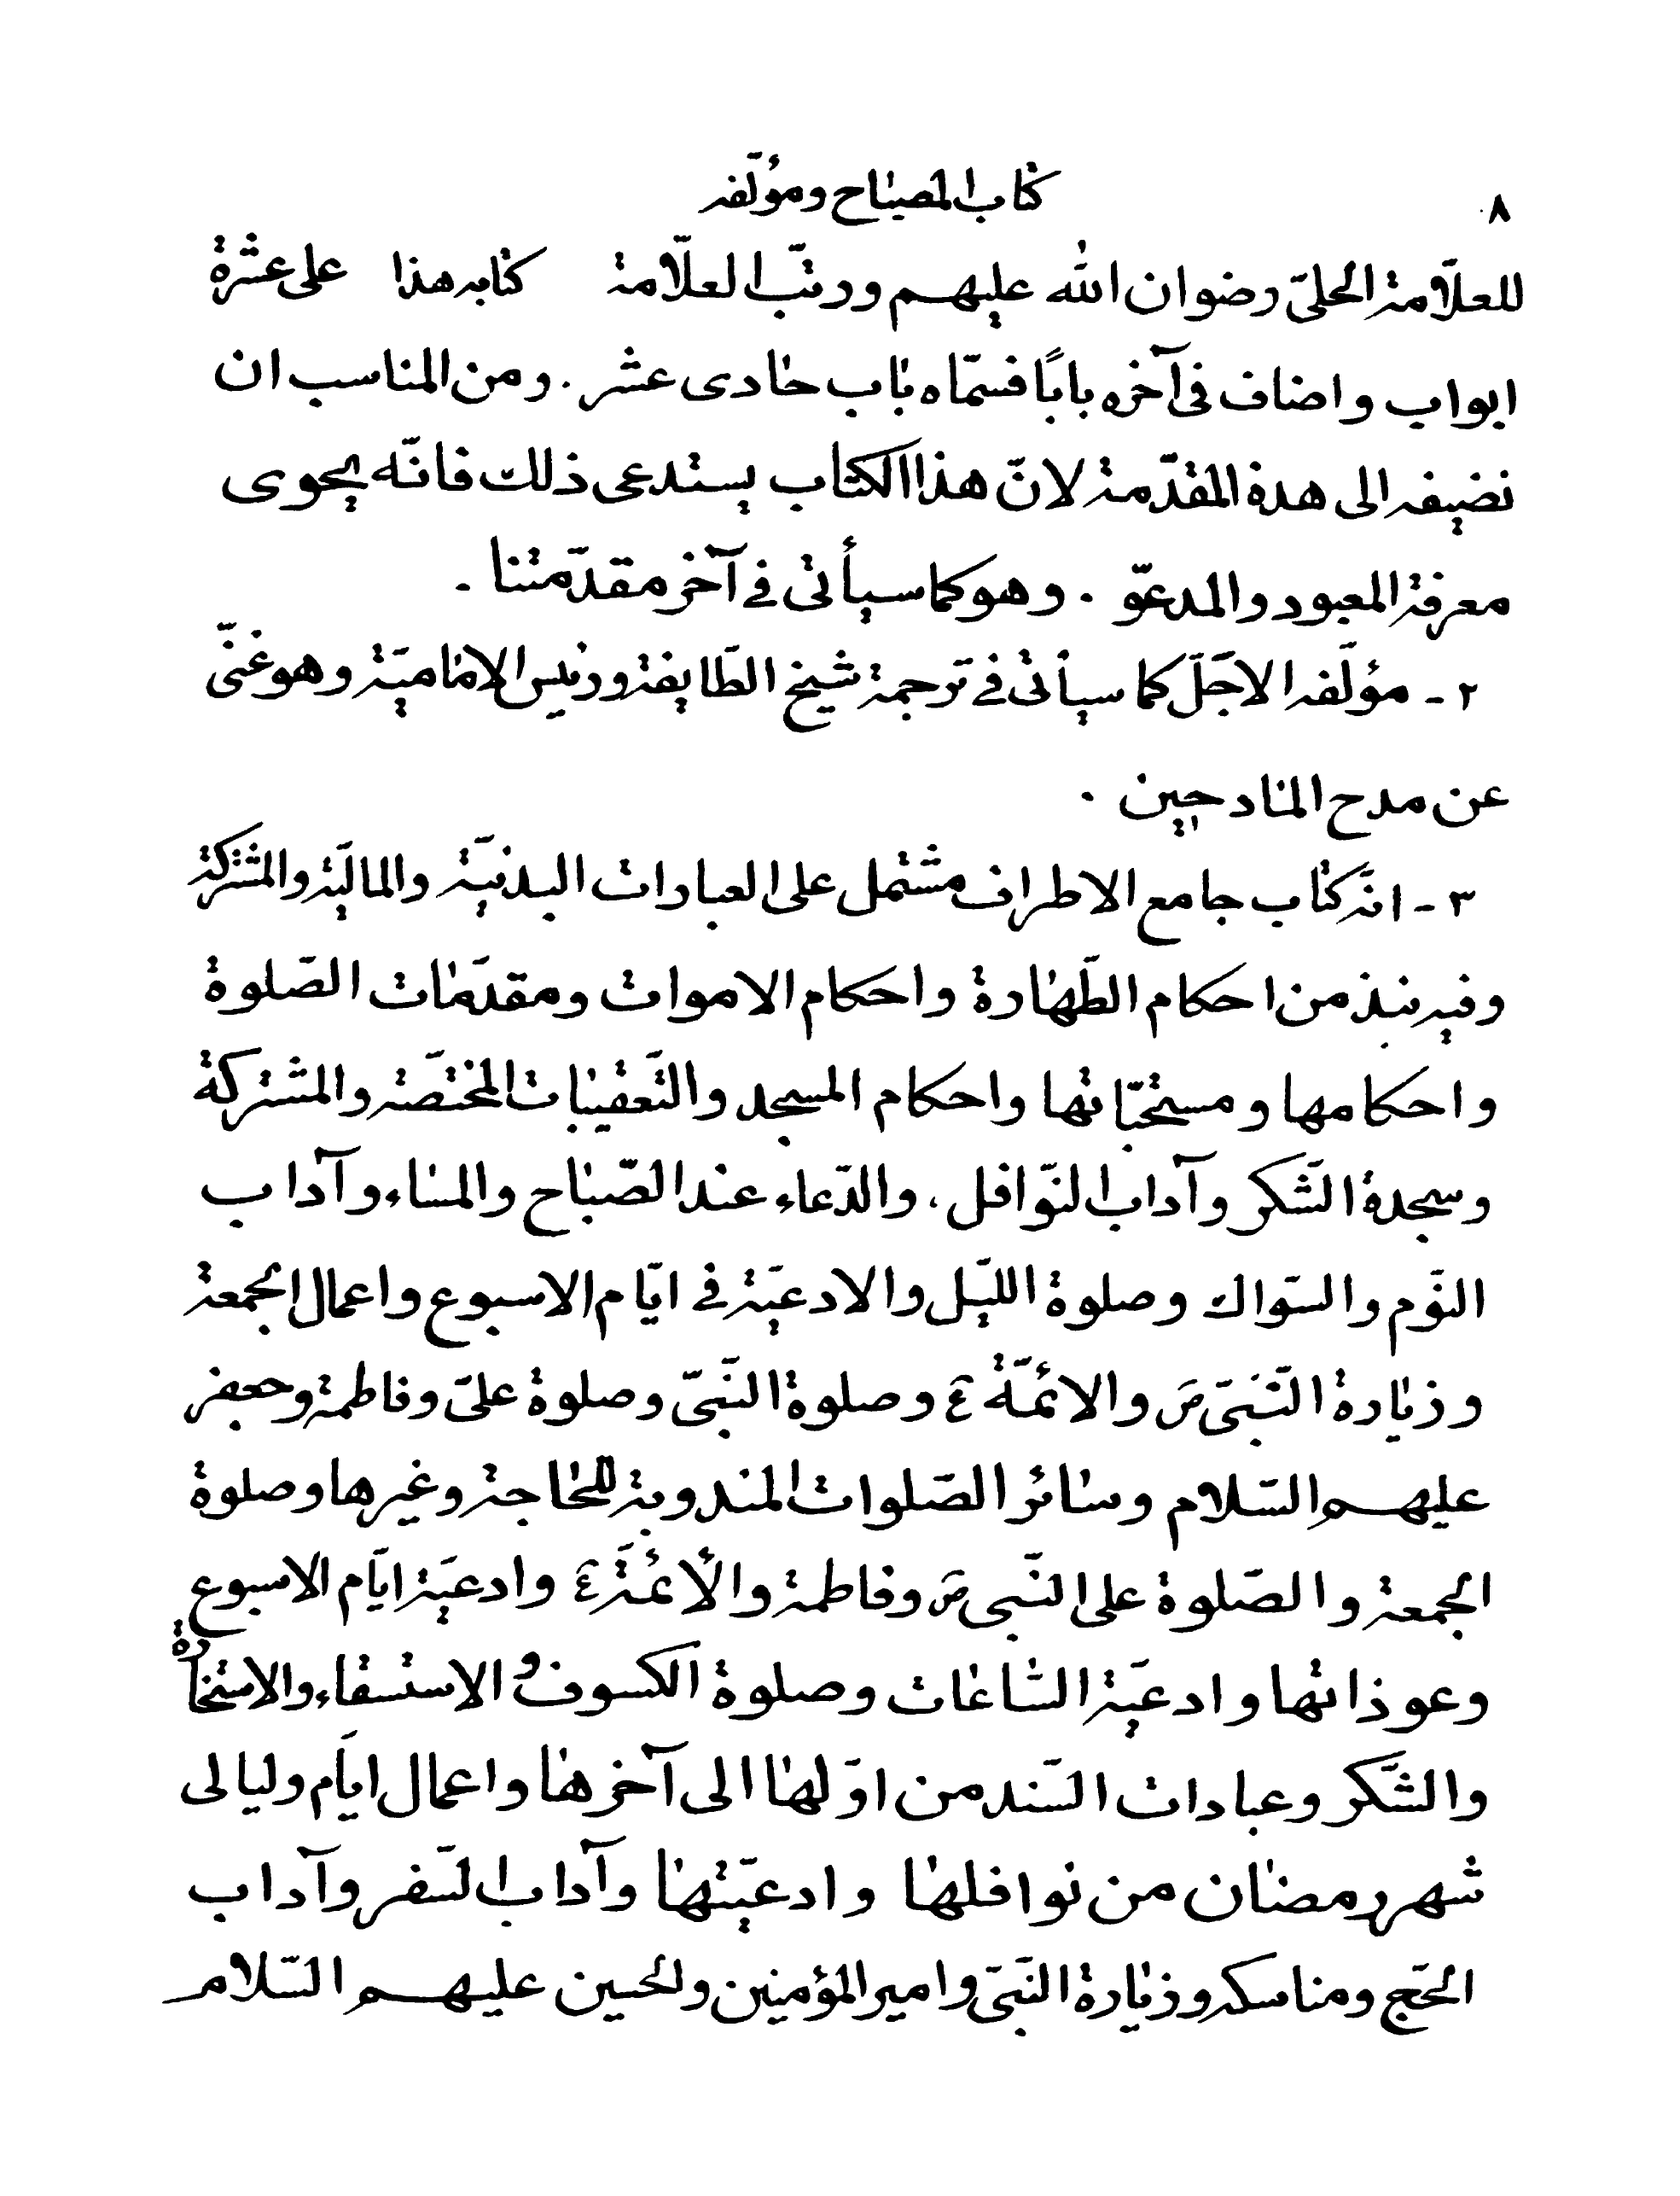 ٨
كتاب المصباح ومؤلّفه
للعلّامة الحلىّ رضوان الله عليهم ورتّب العلّامة كتابه هذا على عشرة
ابواب واضاف فى آخره باباً فسمّاه باب حادى عشر . ومن المناسب ان
نضيفه الى هدة المقدّمة لانّ هذا الكتاب يستدعى ذلك فانّه يحوى
معرفة المعبود والمدعوّ . وهو كما سيأتى فى آخر مقدّمتنا .
٢ - مؤلّفه الاجلّ كما سيأتى فى ترجمة شيخ الطّايفة ورئيس الاماميّة وهو غنىّ
عن مدح المادحين .
٣ - انّه كتاب جامع الاطراف مشتمل على العبادات البدنيّة والماليّة والمشتركة
وفيه نبذ من احكام الطّهارة واحكام الاموات ومقدّمات الصّلوة
واحكامها ومستحبّاتها واحكام المسجد والتّعقيبات المختصّة والمشتركة
وسجدة الشّكر وآداب النّوافل ، والدّعاء عند الصّباح والمساء وآداب
النّوم والسّواك وصلوة اللّيل والادعيّة فى ايّام الاسبوع واعمال الجمعة
وزيارة النّبىّ ص والائمّة ع وصلوة النّبىّ وصلوة علىّ وفاطمة وجعفر
عليهم السّلام وسائر الصّلوات المندوبة للحاجة وغيرها وصلوة
الجمعة والصّلوة على النّبى ص وفاطمة والأئمّة ع وادعيّة ايّام الاسبوع
وعوذاتها وادعيّة السّاعات وصلوة الكسوف و الاستسقاء والاستخارة
والشّكر وعبادات السّنه من اوّلها الى آخرها واعمال ايّام وليالى
شهر رمضان من نوافلها وادعيّتها وآداب السّفر وآداب
الحّج ومناسكه وزيارة النّبىّ وامير المؤمنين والحسين عليهم السّلام